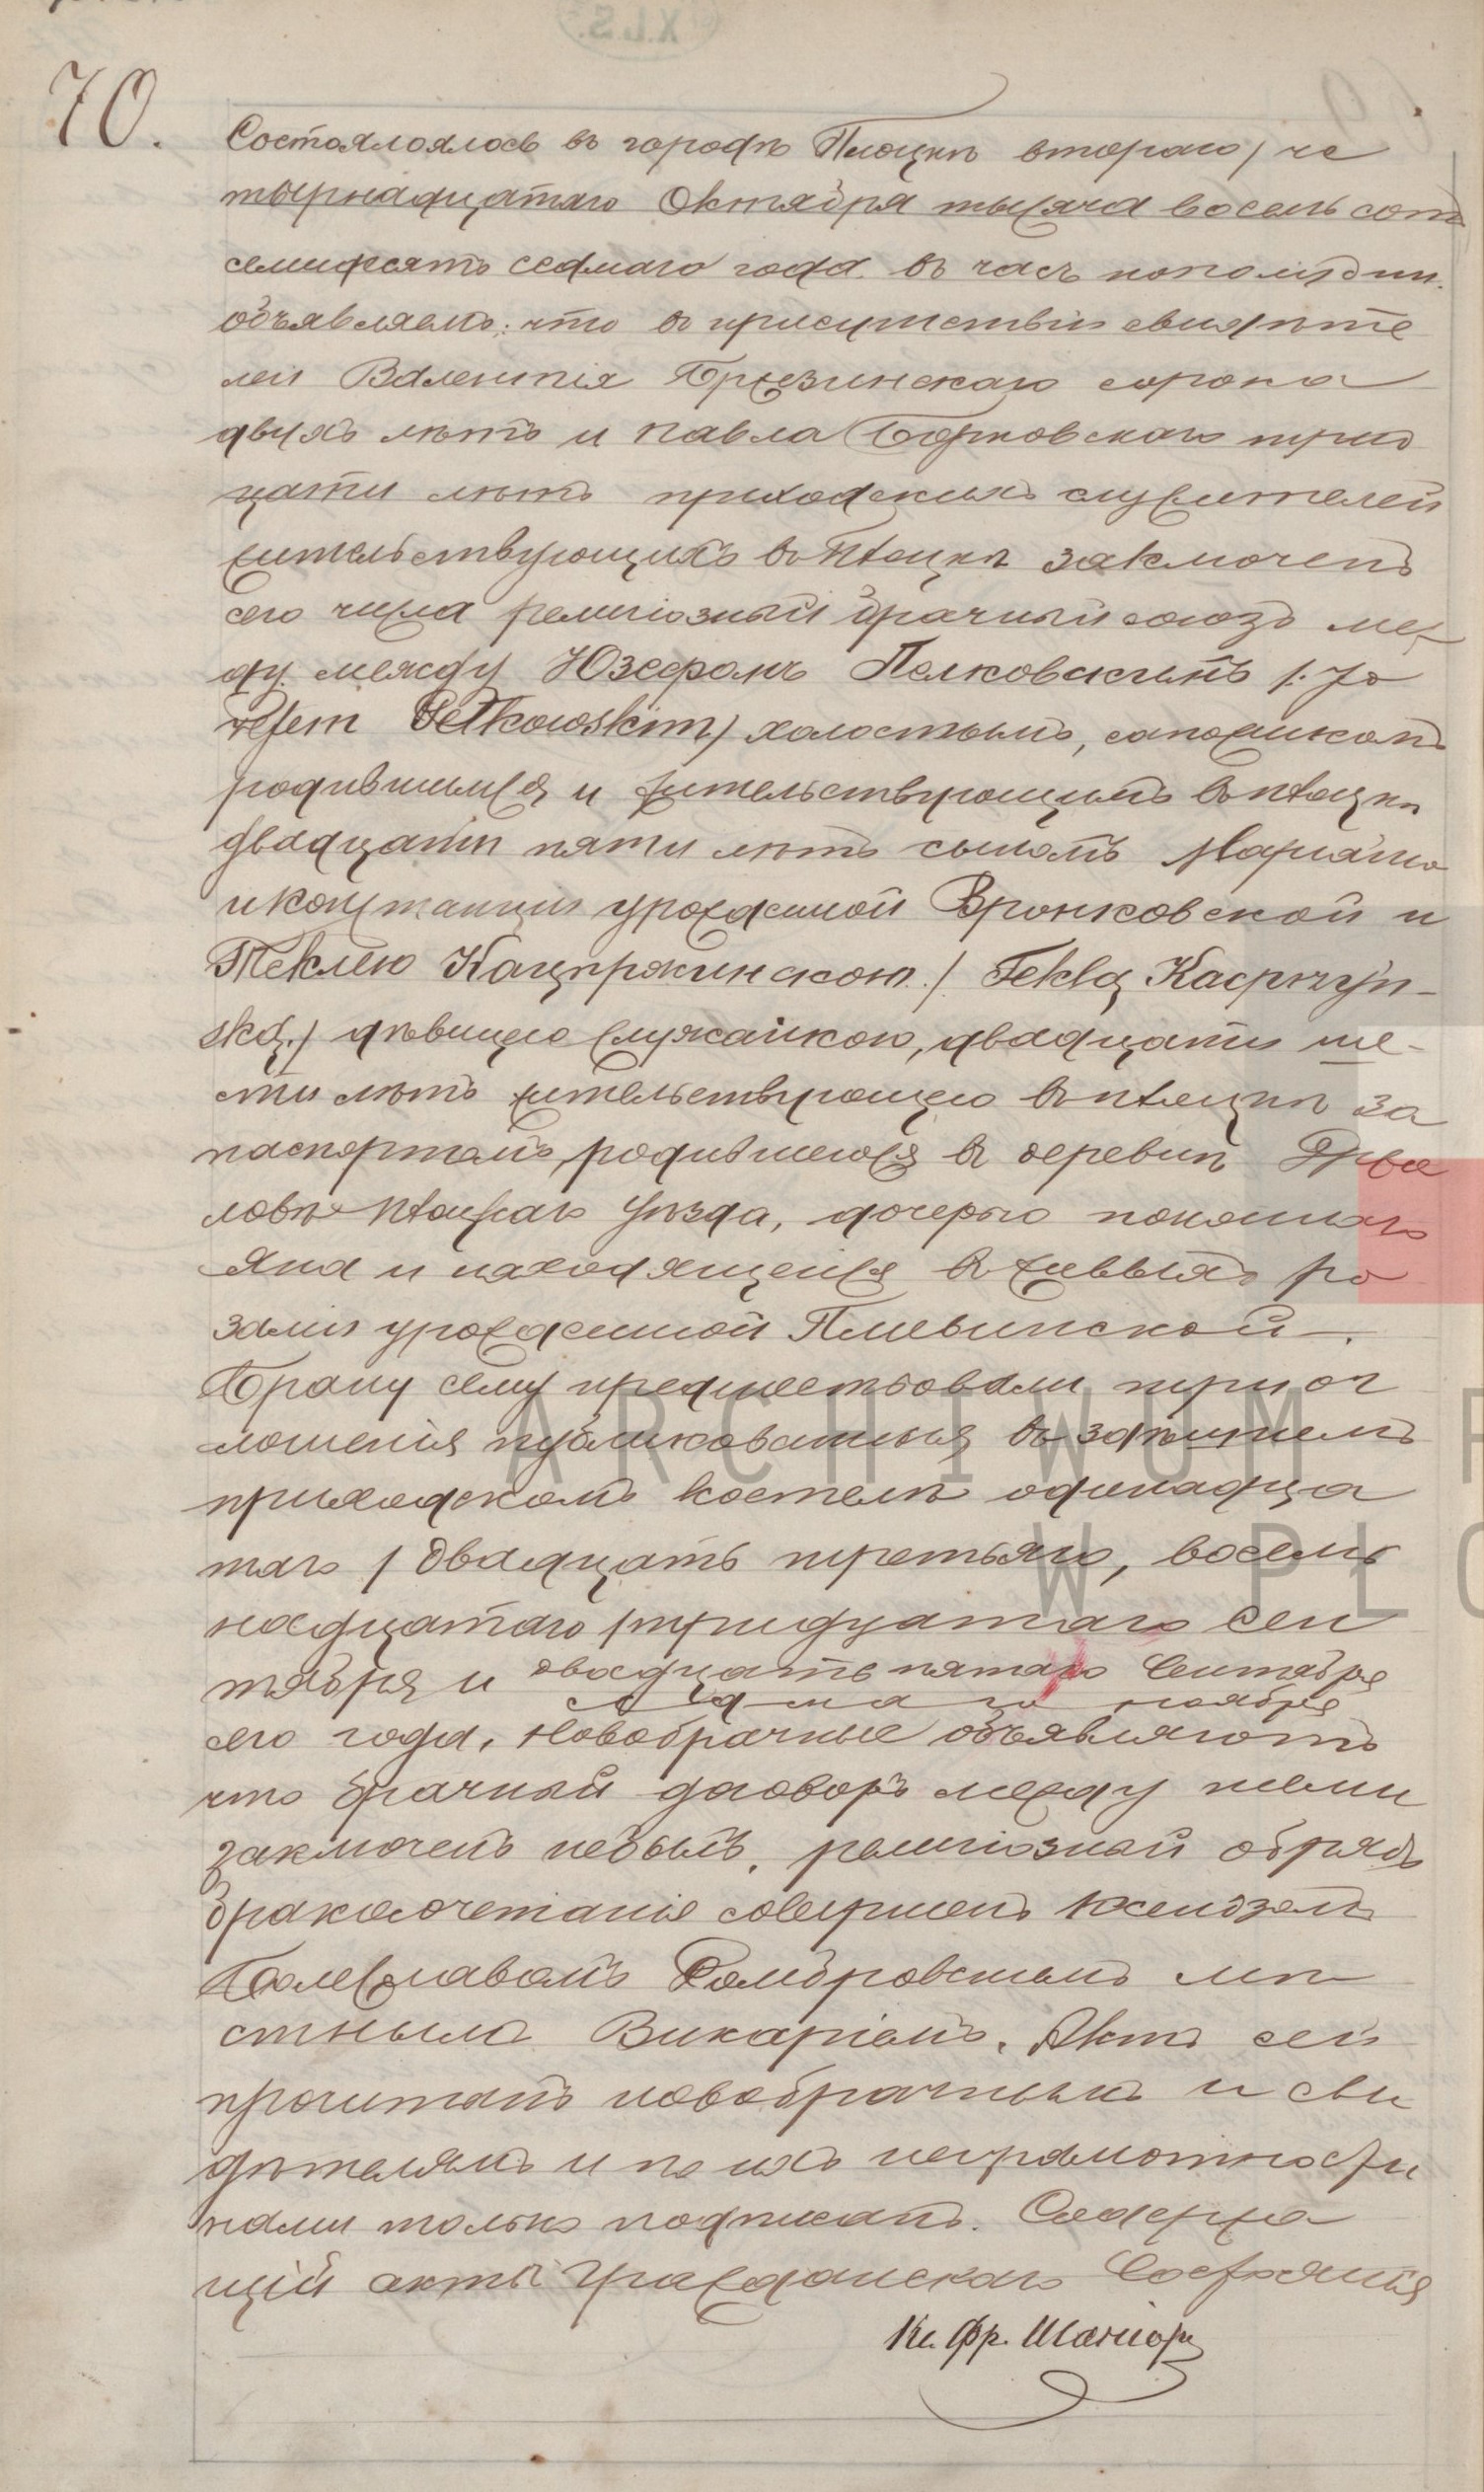 70.
Состоялоялось въ городѣ Плоцкѣ втораго / че
тырнадцатаго Октября тысяча восемь сотъ
семидесятъ седмаго года въ часъ пополудни.
объявляемъ: что въ присутствіи свидѣте
лей Валентія Бржезинскаго сорока
двухъ лѣтъ и Павла Борковскаго трид
цати лѣтъ приходскихъ служителей
жительствующихъ въ Плоцкѣ заключенъ
сего числа религіозный брачный союзъ ме
ду между Юзефомъ Пелковскимъ /: Jo
zefem Pelkowskim / холостымъ, сапожникомъ
родившимся и жительствующимъ въ Плоцкѣ
двадцати пяти лѣтъ сыномъ Маріана
и Констанціи урожденной Вронковской и
Теклею Кацпржинскою / Teklą Kacprzyń-
ską / дѣвицею служанкою, двадцати ше-
сти лѣтъ жительствующею въ Плоцкѣ за
паспортомъ, родившеюся въ деревнѣ
ловѣ Плоцкаго уѣзда, дочерью покойнаго
Яна и находящейся въ живыхъ Ро
заліи урожденной Плевинской.
Браку сему предшествовали три ог
лошенія публикованныя въ здѣшнемъ
приходскомъ костелѣ одинадца
таго / двадцать третьяго, восем
надцатаго / тридцатаго Сен
тября и двадцать пятаго Сентября
седмаго ноября
сего года. Новобрачные объявляютъ
что брачный договоръ между ними
заключенъ небылъ, религіозный обрядъ
бракосочетанія совершенъ Ксендзомъ
Болеславомъ Домбровскимъ мѣ
стнымъ Викаріемъ. Актъ сей
прочитанъ новобрачнымъ и сви
дѣтелямъ и по ихъ неграмотности
нами только подписанъ. Содержа
щій акты Гражданскаго Состоянія
Кс. Фр.